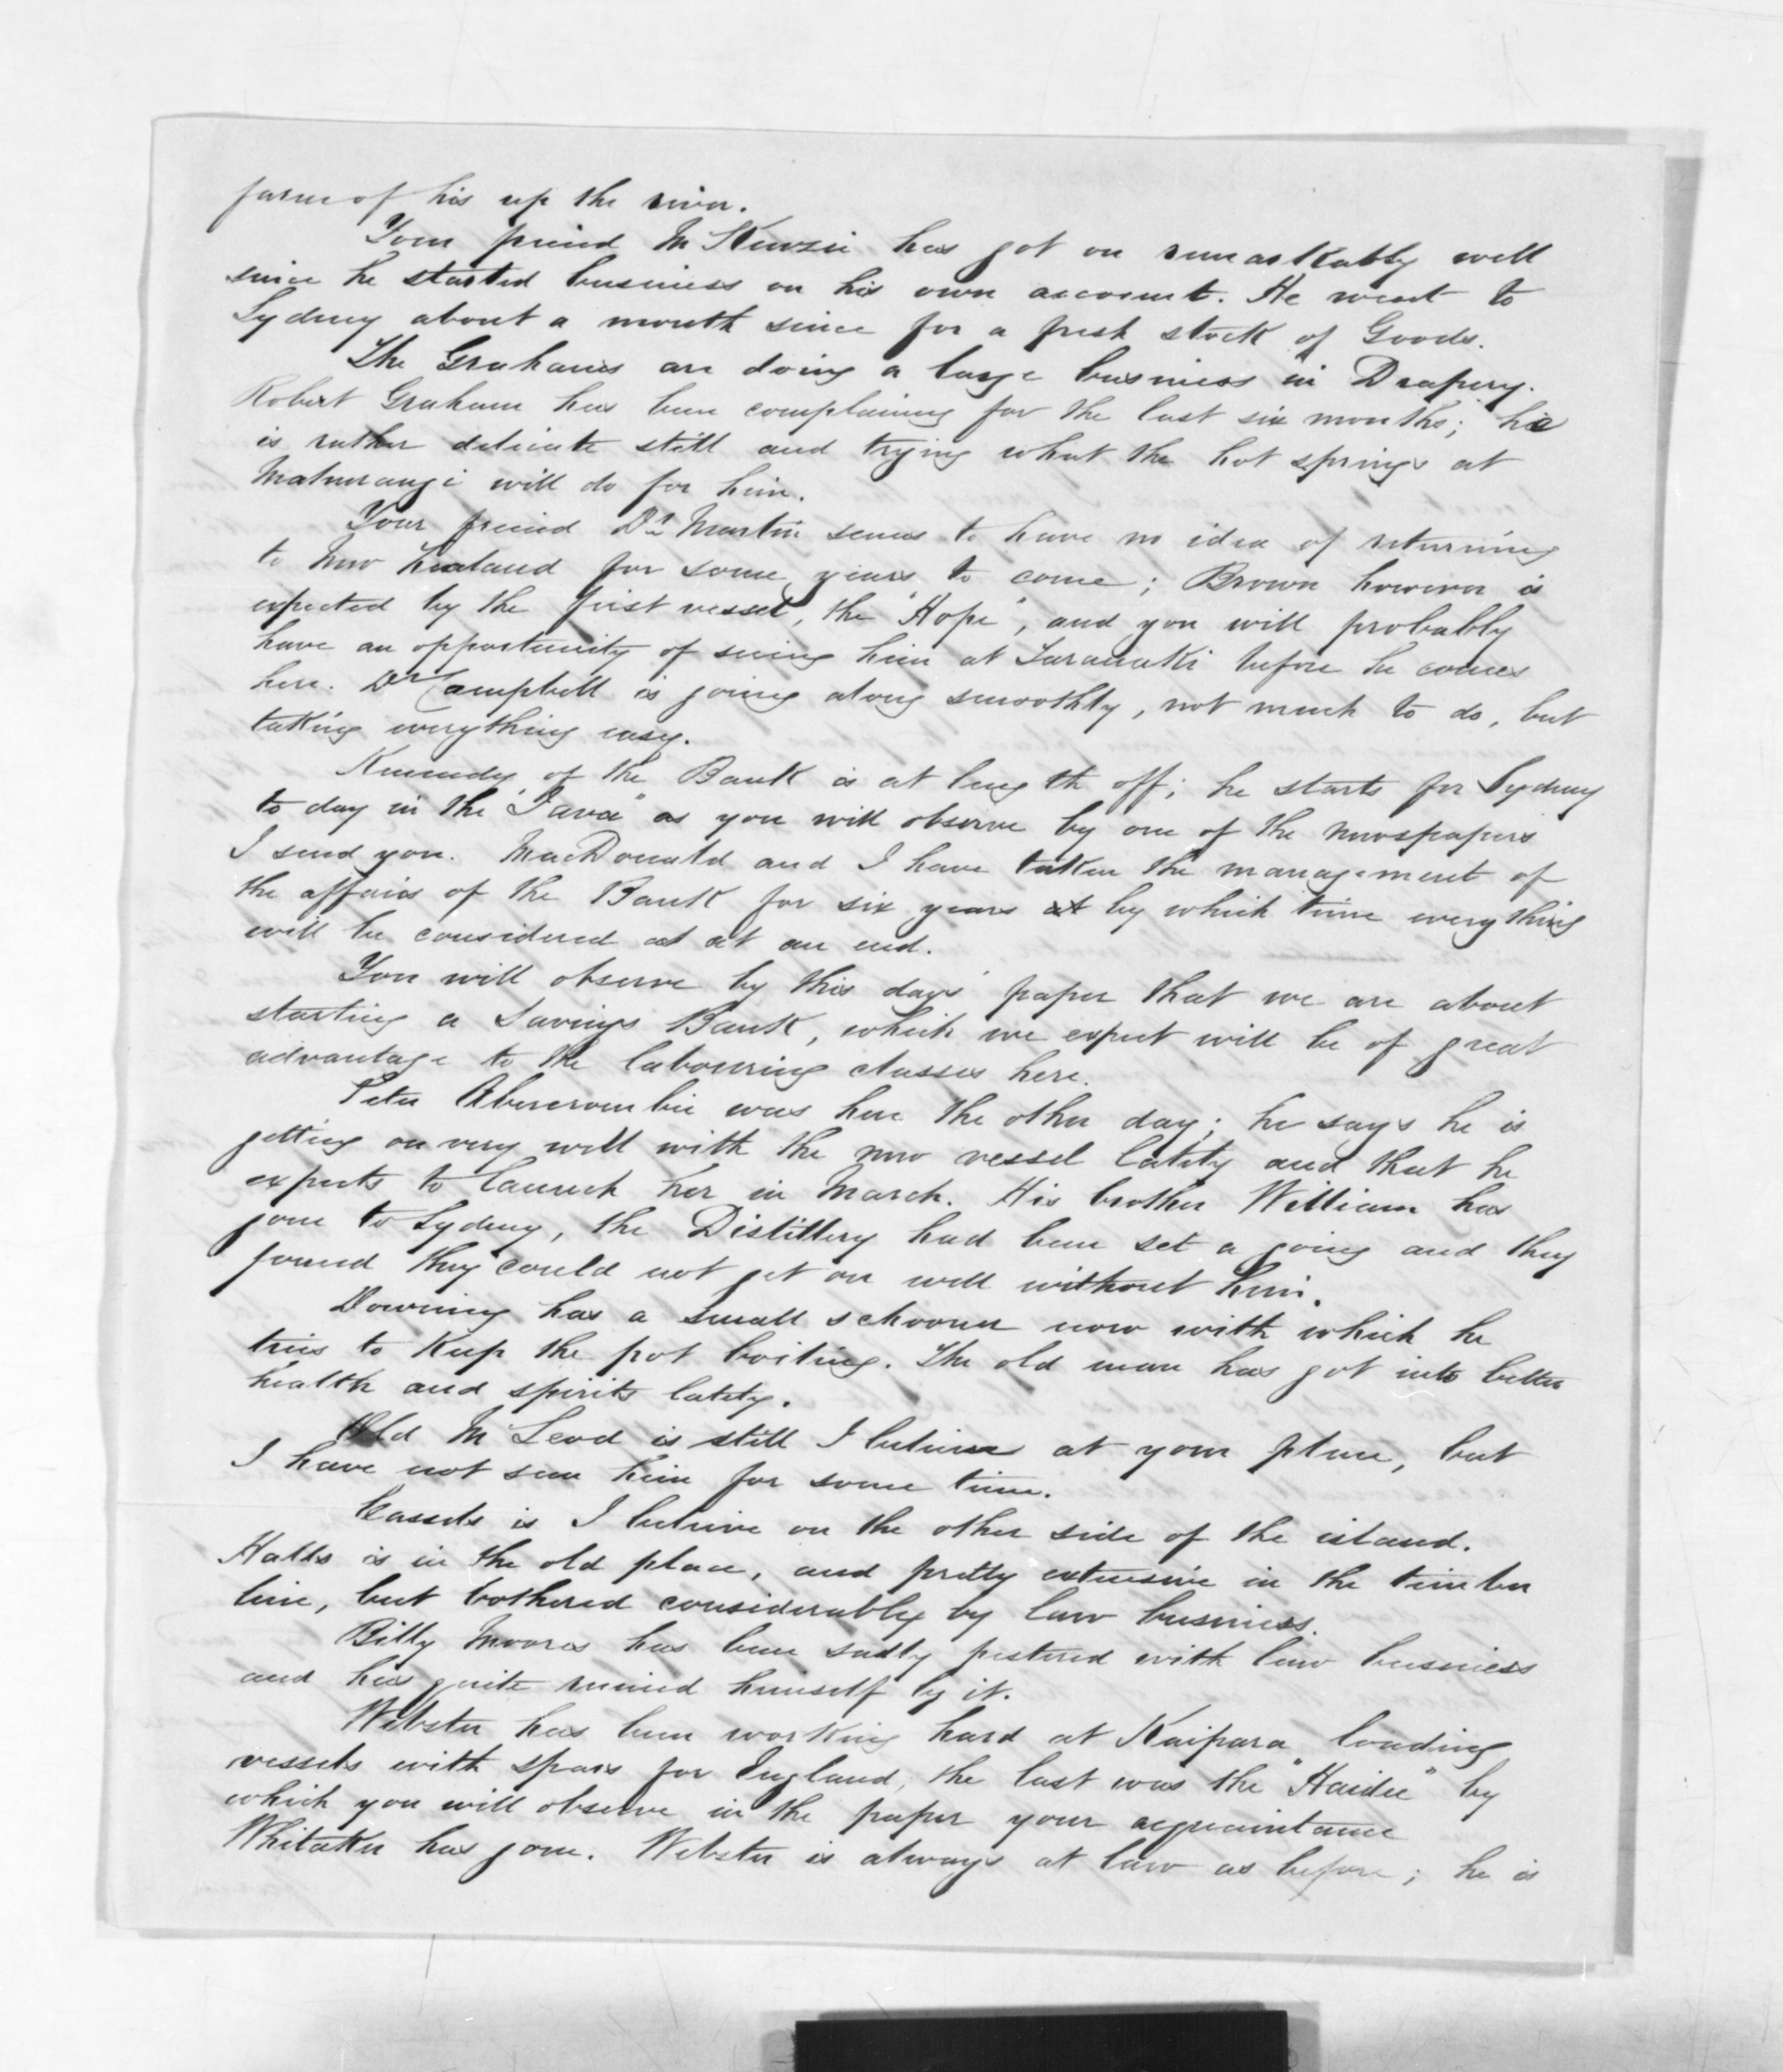 farm of his up the river.
Your friend McKenzie has got on remarkably well
since he started business on his own account. He went to
Sydney about a month since for a fresh stock of Goods.
The Grahams are doing a large business in Drapery.
Robert Graham has been complaining for the last six months; he
is rather delicate still and trying what the hot springs at
Mahurangi will do for him.
Your friend Dr. Martin seems to have no idea of returning
to New Zealand for some years to come; Brown however is
expected by the first vessel, the "Hope", and you will probably
have an opportunity of seeing him at Taranaki before he comes
here. Dr Campbell is going along smoothly, not much to do, but
taking everything easy.
Kennedy of the Bank is at length off; he starts for Sydney
to day in the "Java" as you will observe by one of the newspapers
I send you. MacDonald and I have taken the management of
the affairs of the Bank for six years at by which time everything
will be considered as at an end.
You will observe by this days' paper that we are about
starting a Savings Bank, which we expect will be of great
advantage to the labouring classes here.
Peter Abercrombie was here the other day; he says he is
getting on very well with the new vessel lately and that he
expects to launch her in March. His brother William has
gone to Sydney, the Distillery had been set a going and they
found they could not get on well without him.
Downing has a small schooner now with which he
tries to keep the pot boiling. The old man has got into better
health and spirits lately.
Old McLeod is still I believe at your place, but
I have not seen him for some time.
Cassels is I believe on the other side of the island.
Halls is in the old place, and pretty extensive in the timber
line, but bothered considerably by law business.
Billy Moores has been sadly pestered with law business
and has quite ruined himself by it.
Webster has been working hard at Kaipara loading
vessels with spars for England, the last was the "Haidee" by
which you will observe in the paper your acquaintance
Whitaker has gone. Webster is always at law as before; he is